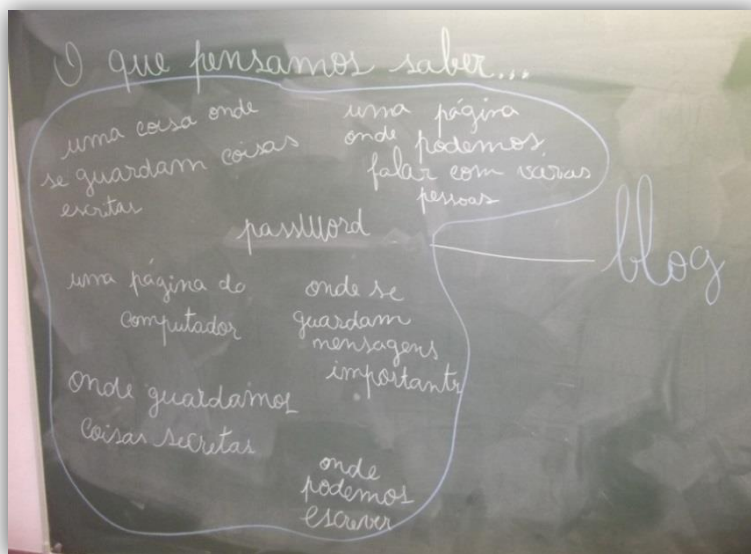 O que pensamos saber...
uma coisa onde
se guardam coisas
escritas
uma página
onde podemos
falar com várias
pessoas
passWord
blog
uma página do
computador
onde se
guardam
mensagens
importante
onde guardamos
coisas secretas
onde
podemos
escrever